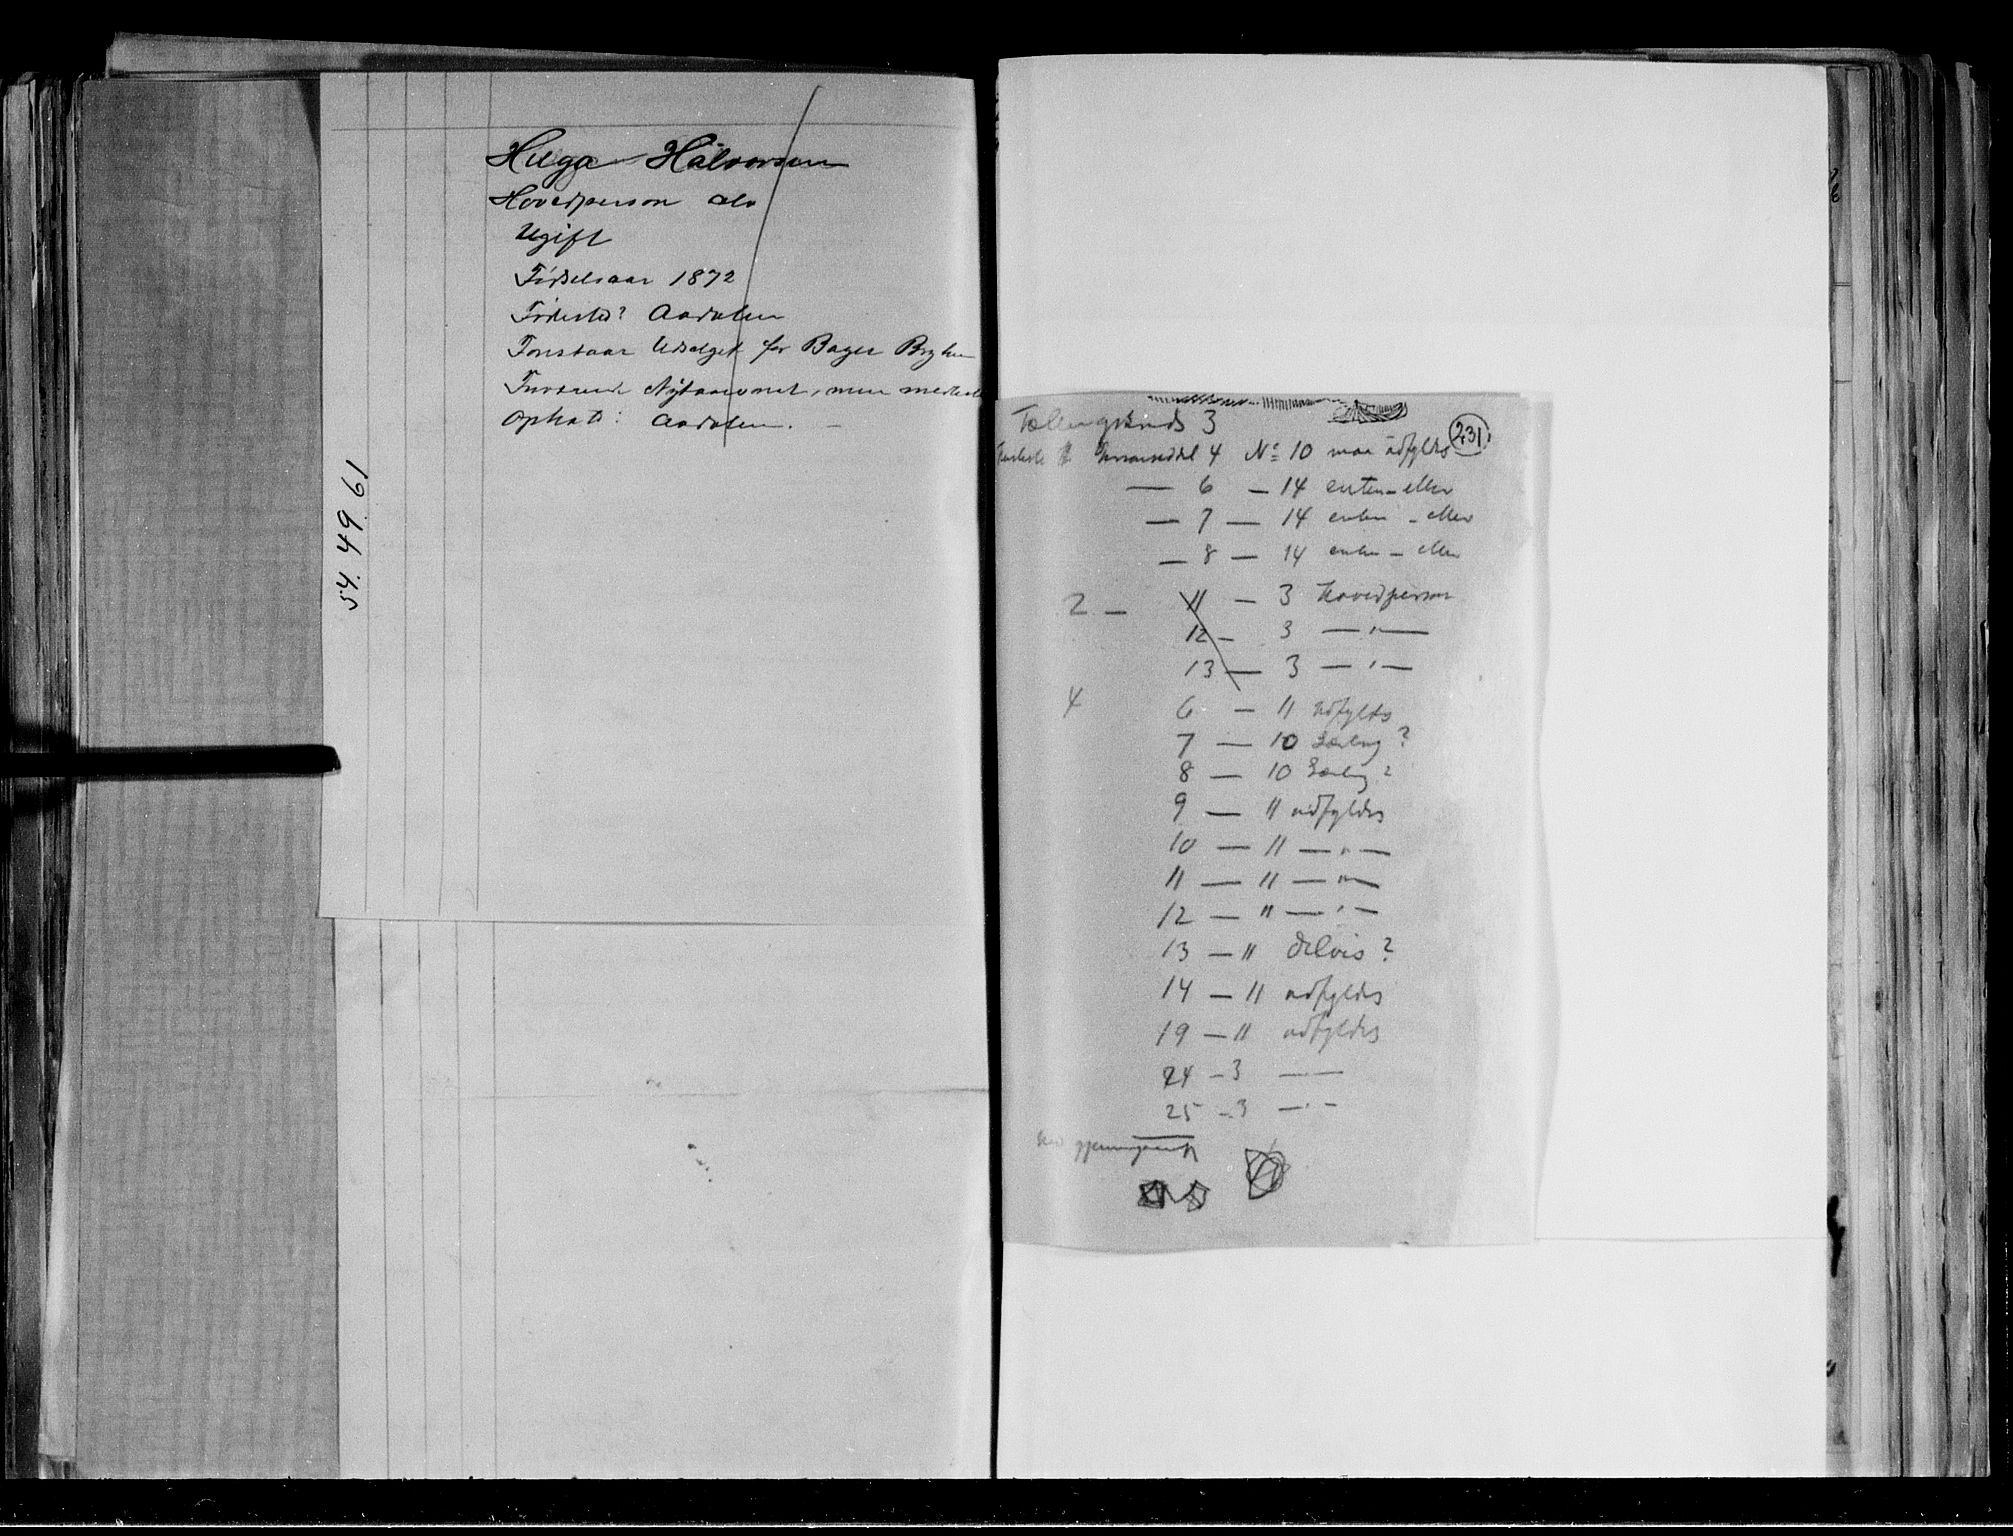 Helga Halvorsen
Hovedperson
Ugift
Fødselsaar 1872
Fødested? Aadalen
Udsalget for Bayer
Nytaarsnat, men
Ophold: Aadalen. —
54. 49. 61
Tællingskreds 3
231
4 No 10 maa udfyldes
— 6 — 14 enten - eller
— 7 — 14 enten - eller
— 8 — 14 enten - eller
2 — 11 — 3 Hovedperson
12 — 3 — " —
13 — 3 — " —
4 6 — 11 udfyldes
7 — 10 ?
8 — 10 ?
9 — 11 udfyldes
10 — 11 — " —
11 — 11 — " —
12 — 11 — " —
13 — 11 delvis?
14 — 11 udfyldes
19 — 11 udfyldes
24 — 3 — —
25 — 3 — " —